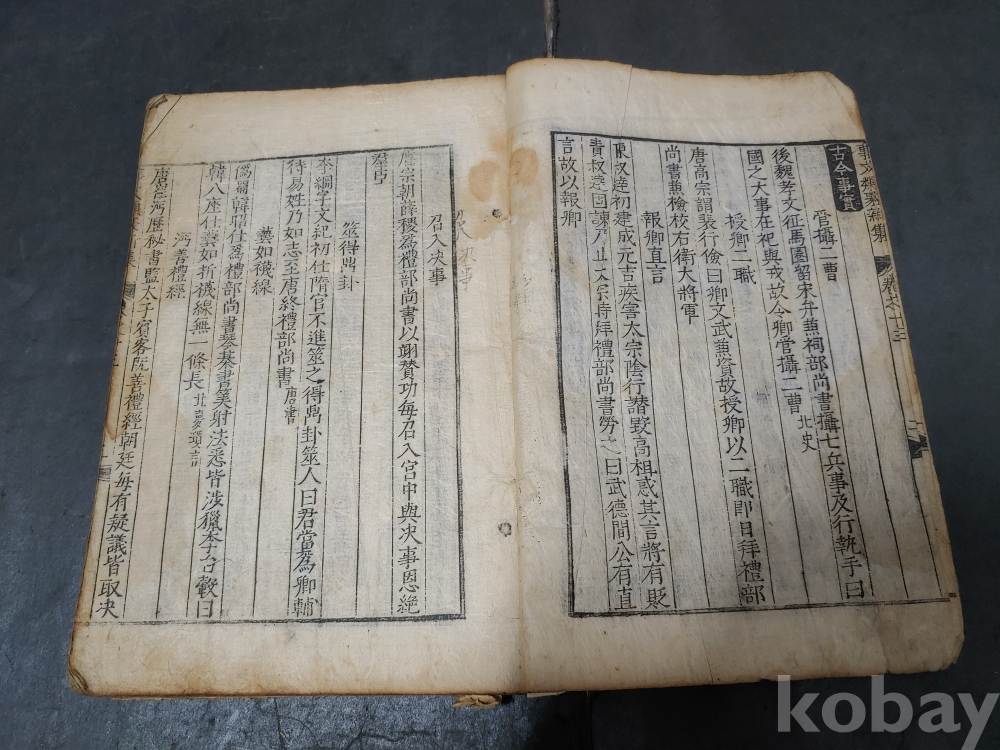 古今事實
管攝二曹
後魏孝文征馬圈留宋弁兼祠部尚書攝七兵事及行執手曰
國之大事在祀與戎故令卿管攝二曹北史
授卿二職
唐高宗謂裴行儉曰卿文武兼資故授卿以二職即日拜禮部
尚書兼檢校右衛大將軍
報卿直言
陳叔達初建成元吉疾害太宗陰行譖毀高祖惑其言將有貶
責叔達固諫乃止太宗時拜禮部尚書勞之曰武德間公有直
言故以報卿
召入決事
唐宗朝薛稷爲禮部尚書以翊贊功每召入宮中與決事恩絶
羣臣
筮得鼎卦
李綱字文紀初仕隋官不進筮之得鼎卦筮人曰君當爲卿輔
待易姓乃如志至唐終禮部尚書唐書
藝如襪線
僞蜀韓昭仕爲禮部尚書琴棊書筭射法悉皆涉獵李台嘏曰
韓八座仕藝如折襪線無一條長北夢瑣言
沔善禮經
唐沔歷秘書監太子賓客既善禮經朝廷每有疑議皆取決
kobay